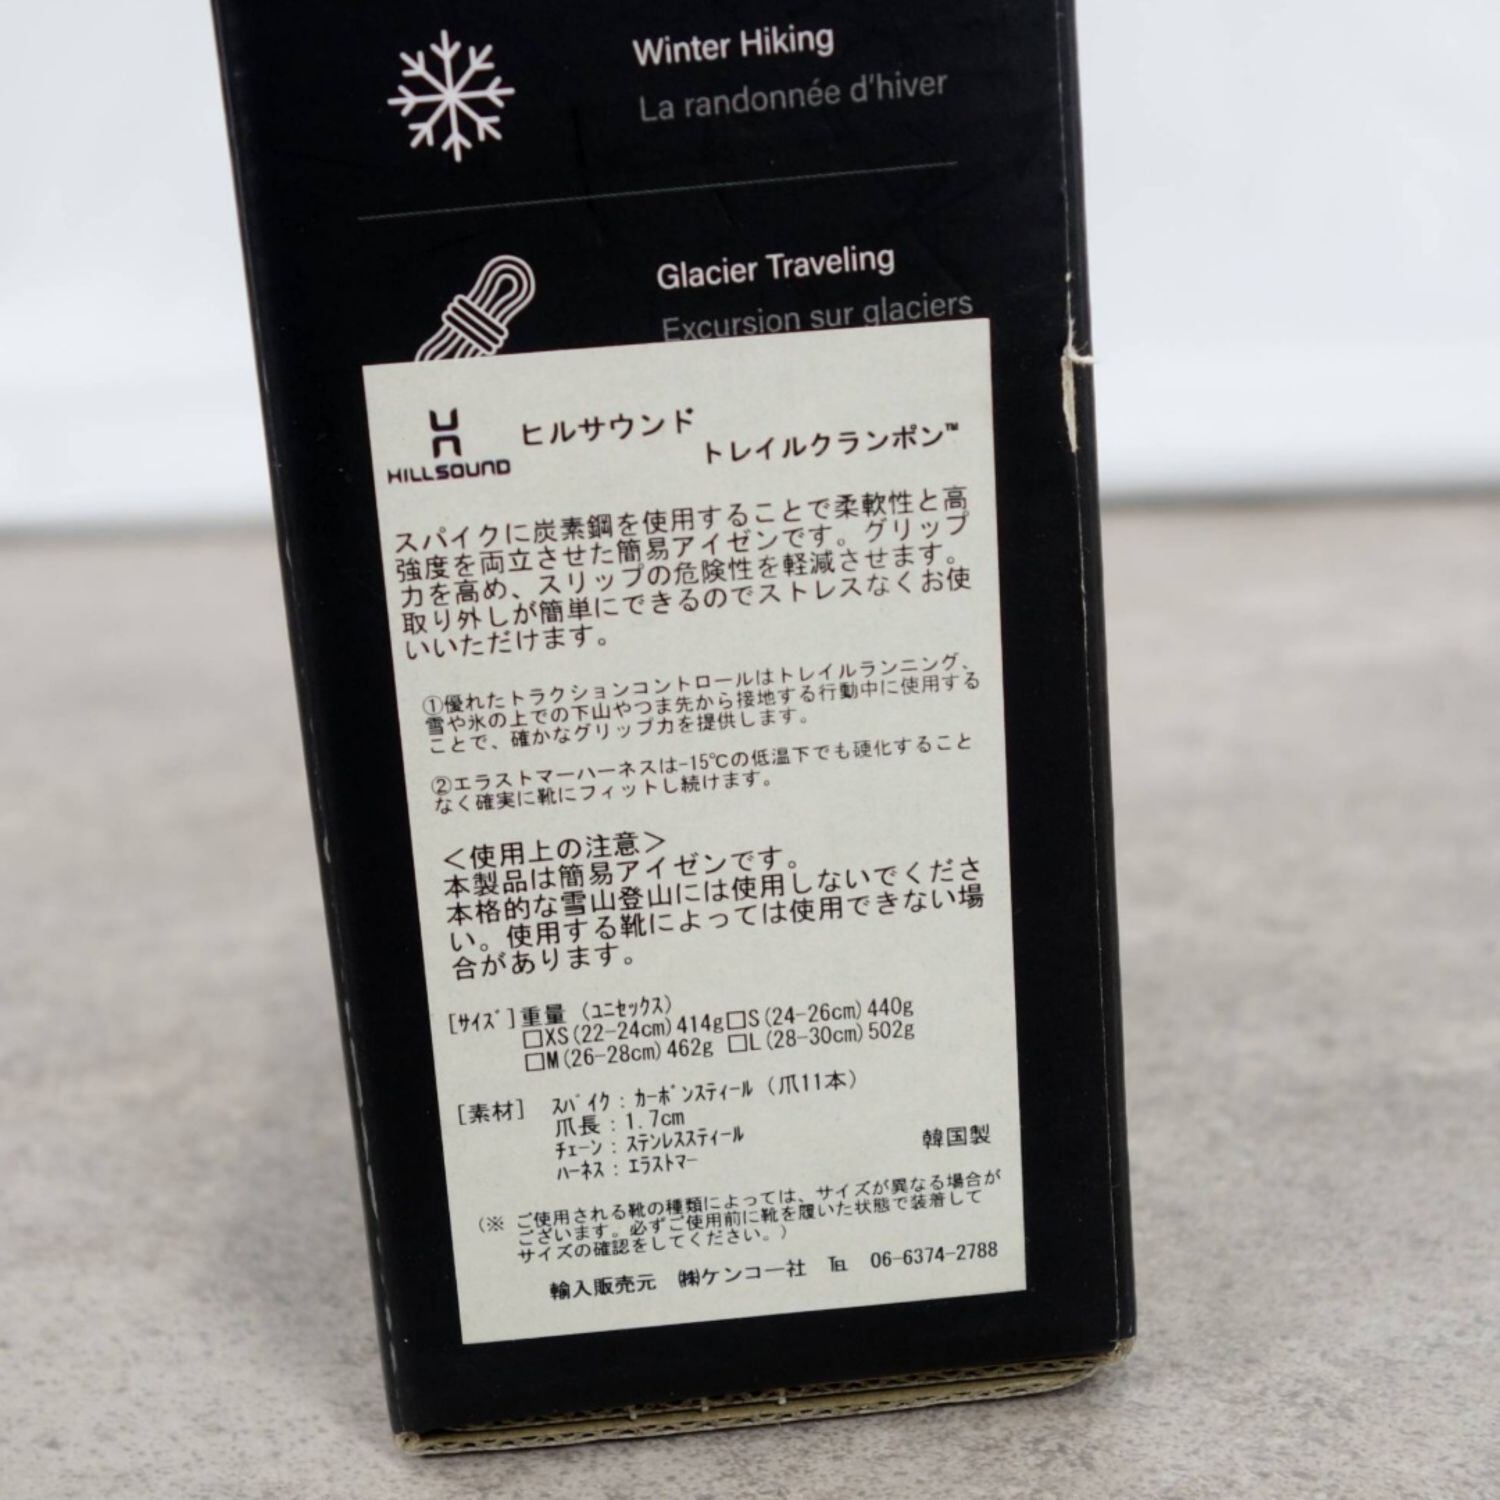 Winter Hiking
La randonnée d'hiver
Glacier Traveling
Excursion sur glaciers
HILLSOUND
ヒルサウンド
トレイルクランポン™
スパイクに炭素鋼を使用することで柔軟性と高
強度を両立させた簡易アイゼンです。グリップ
力を高め、スリップの危険性を軽減させます。
取り外しが簡単にできるのでストレスなくお使
いいただけます。
①優れたトラクションコントロールはトレイルランニング、
雪や氷の上での下山やつま先から接地する行動中に使用する
ことで、確かなグリップ力を提供します。
②エラストマーハーネスは-15℃の低温下でも硬化すること
なく確実に靴にフィットし続けます。
＜使用上の注意＞
本製品は簡易アイゼンです。
本格的な雪山登山には使用しないでくださ
い。使用する靴によっては使用できない場
合があります。
[ｻｲｽﾞ]重量（ﾕﾆｾｯｸｽ）
□XS(22-24cm)414g□S(24-26cm)440g
□M(26-28cm)462g □L(28-30cm)502g
[素材] ｽﾊﾟｲｸ：ｶｰﾎﾞﾝｽﾃｨｰﾙ（爪11本）
爪長：1.7cm
ﾁｪｰﾝ：ｽﾃﾝﾚｽｽﾃｨｰﾙ 韓国製
ﾊｰﾈｽ：ｴﾗｽﾄﾏｰ
（※ ご使用される靴の種類によっては、サイズが異なる場合が
ございます。必ずご使用前に靴を履いた状態で装着して
サイズの確認をしてください。）
輸入販売元 ㈱ケンコー社 ℡ 06-6374-2788